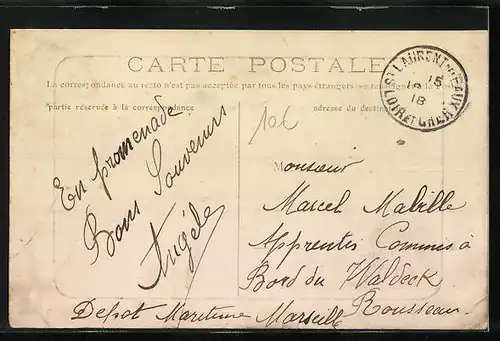 CARTE POSTALE
La correspondance au recto n'est pas acceptée par tous les pays étrangers
partie réservée à la correspondance
adresse du destin
ST LAURENT-DES-EAUX
15
18
LOIR-ET-CHER
10c
En promenade
Bons Souvenirs
Angèle
Monsieur
Marcel Mabille
Apprentis Commis à
Bord du Waldeck
Rousseau
Depot Maritime Marseille